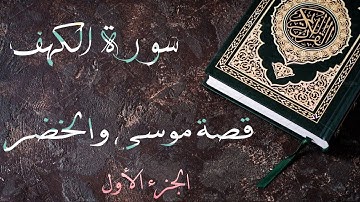 سورة الكهف
قصة موسى والخضر
الجزء الأول